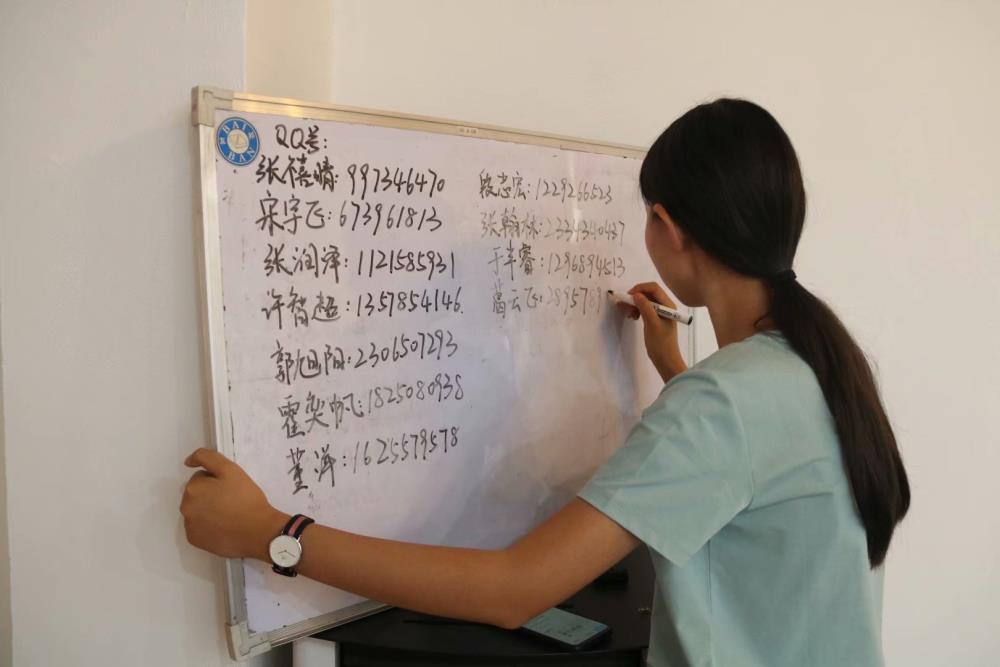 BAI
BAN
QQ号:
张禧晴: 997346470
宋宇飞: 673961813
张润泽: 1121585931
许智超: 1357854146.
郭旭阳: 2306507293
霍奕帆: 1825080938
董洋: 1625579578
段志宏: 1229266523
张翰林: 2334340437
于丰睿: 1296894513
葛云飞: 2895789